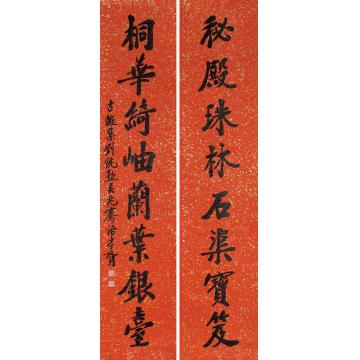 秘殿珠林石渠寶笈
桐華綺岫蘭葉銀臺